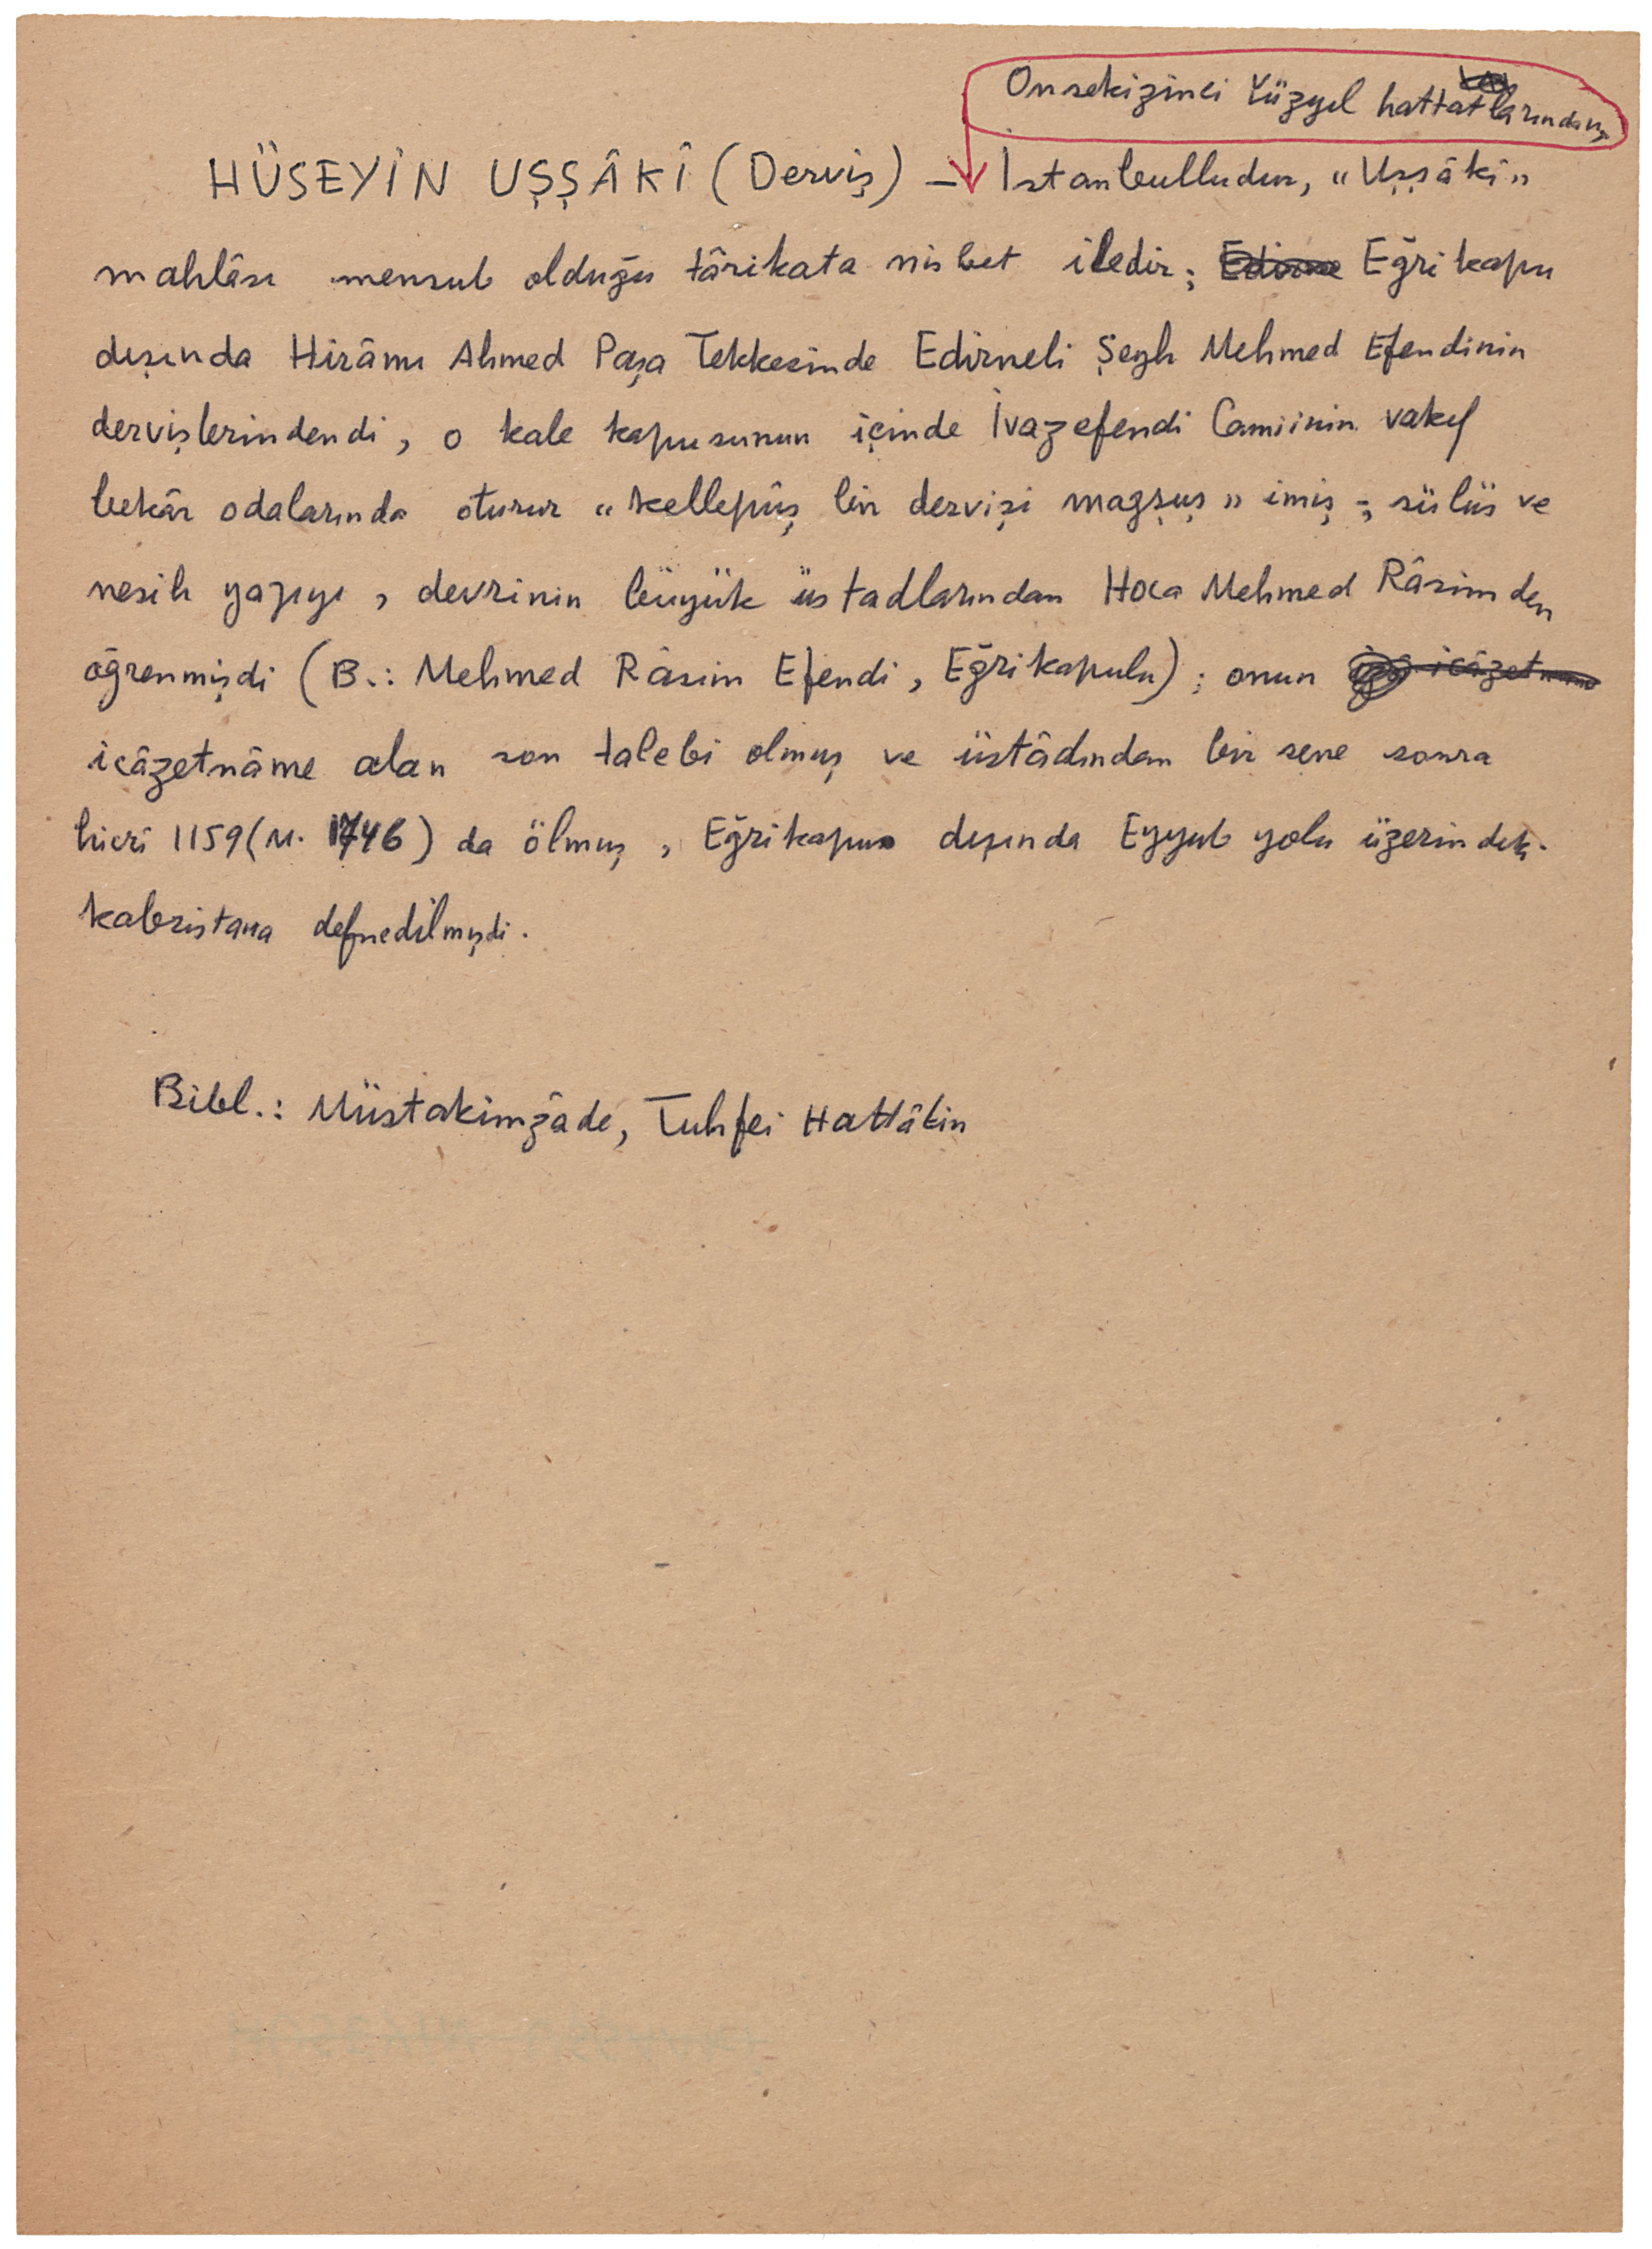 Onsekizinci Yüzyıl hattatlarından,
HÜSEYİN UŞŞÂKÎ (Derviş) — İstanbulludur, "Uşşâkî"
mahlâsı mensub olduğu târikata nisbet iledir; Edirne Eğrikapu
dışında Hirâmi Ahmed Paşa Tekkesinde Edirneli Şeyh Mehmed Efendinin
dervişlerindendi, o kale kapusunun içinde İvazefendi Camiinin vakıf
bekâr odalarında oturur "kellepûş bir dervişi magşuş" imiş; sülüs ve
nesih yazıyı, devrinin büyük üstadlarından Hoca Mehmed Râsimden
öğrenmişdi (B.: Mehmed Râsim Efendi, Eğrikapulu); onun icâzetname
icâzetnâme alan son talebi olmuş ve üstâdından bir sene sonra
hicrî 1159 (M. 1746) da ölmüş, Eğrikapu dışında Eyyub yolu üzerindeki
kabristana defnedilmişdi.
Bibl.: Müstakimzâde, Tuhfei Hattâtin